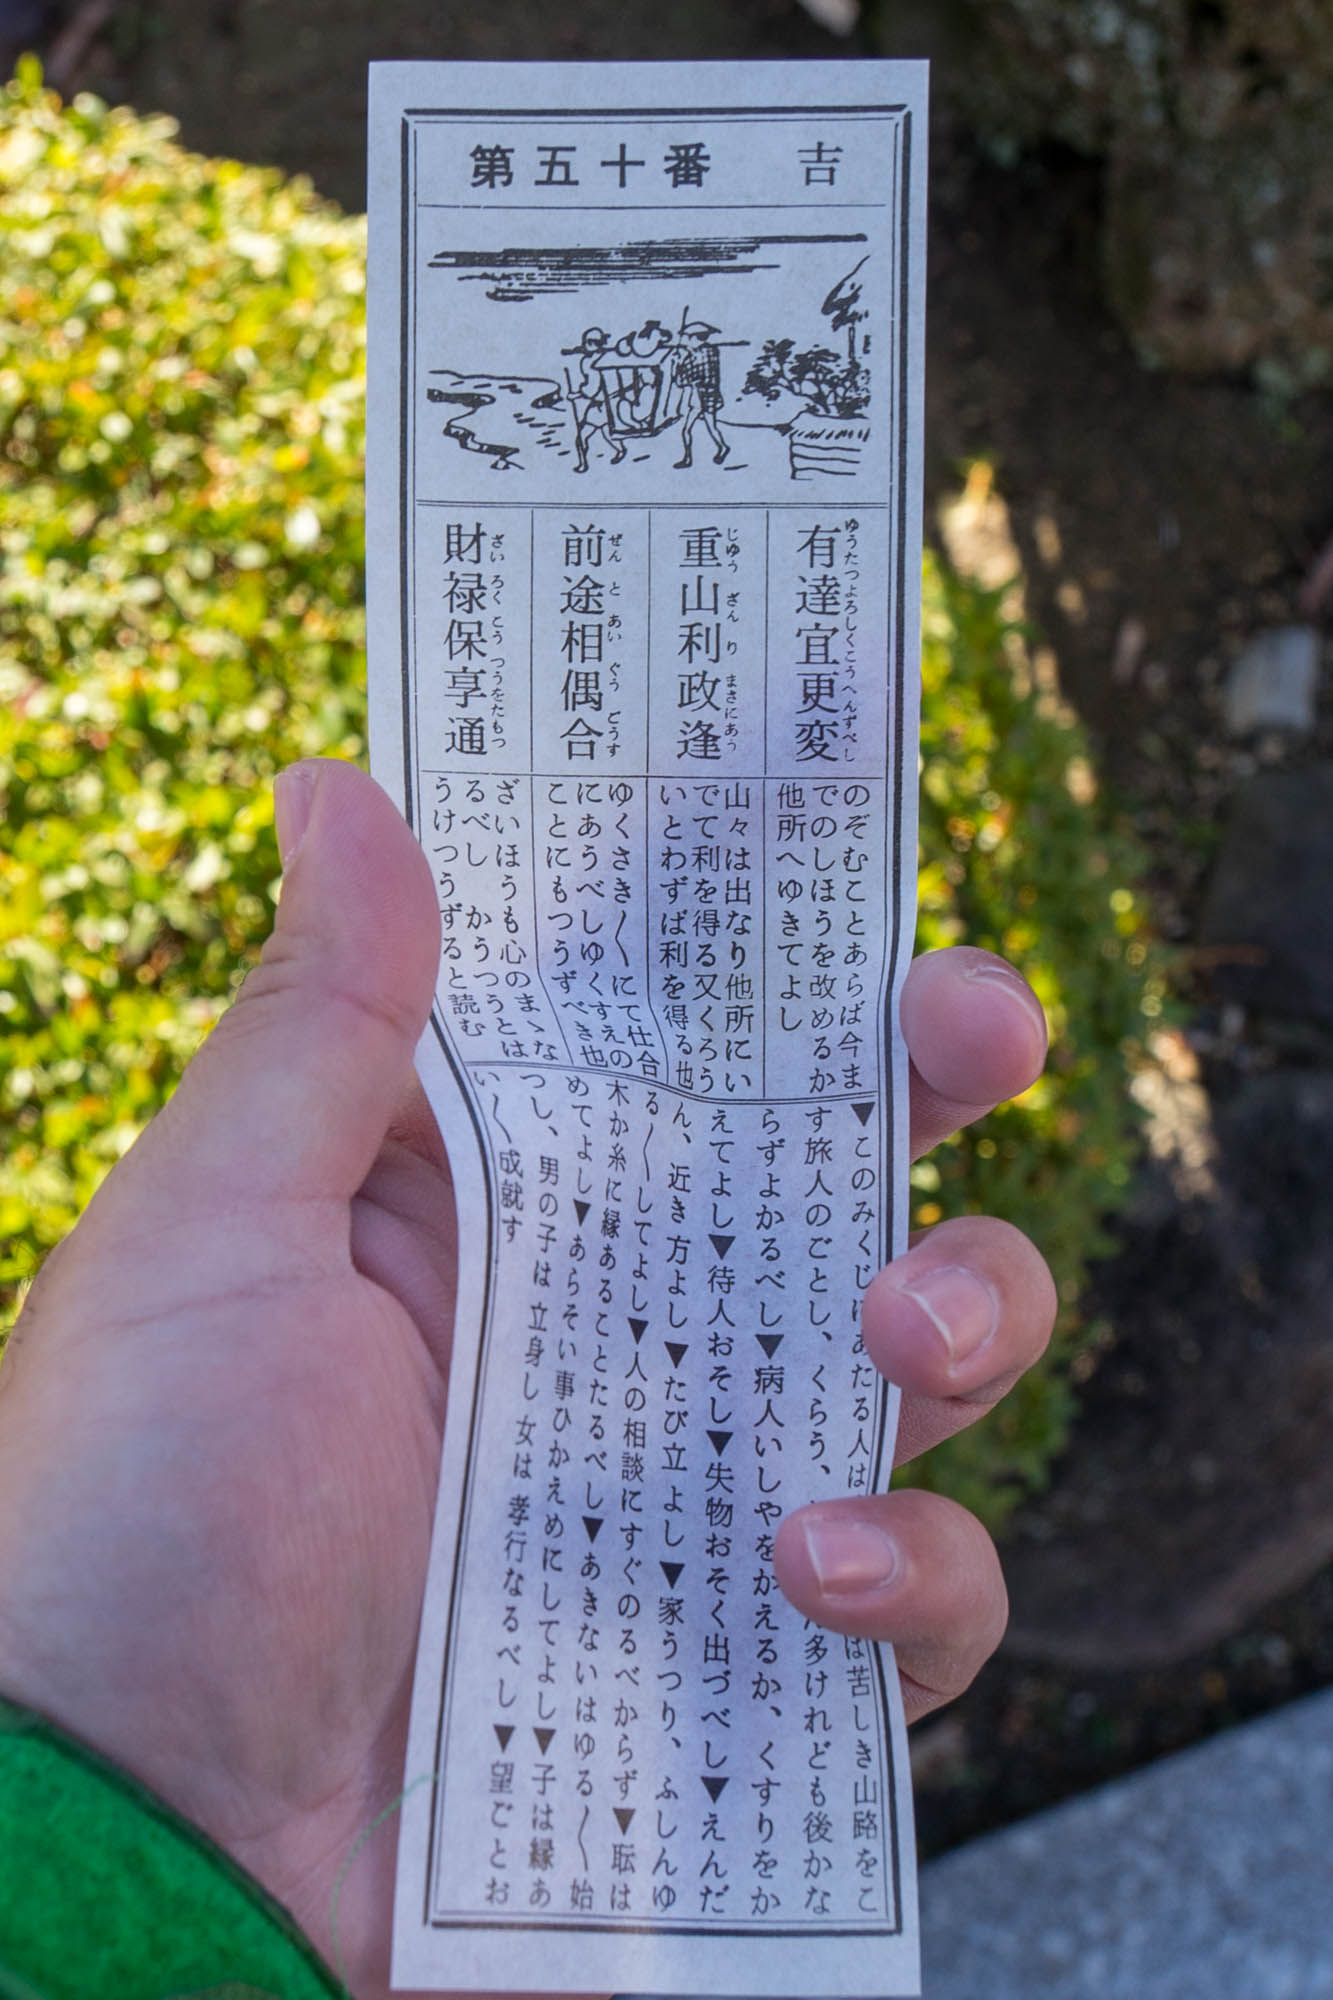 第五十番 吉
有達宜更変
ゆうたつよろしくこうへんずべし
のぞむことあらば今ま
でのしほうを改めるか
他所へゆきてよし
重山利政逢
じゆうざんりまさにあう
山々は出なり他所にい
でて利を得る又くろう
いとわずば利を得る也
前途相偶合
ぜんとあいぐうどうす
ゆくさき〳〵にて仕合
にあうべしゆくすえの
ことにもつうずべき也
財禄保享通
ざいろくとうつうをたもつ
ざいほうも心のまゝな
るべし かうつうとは
うけつうずると読む
▼このみくじにあたる人は 苦しき山路をこ
す旅人のごとし、くらう、 多けれども後かな
らずよかるべし▼病人いしやをかえるか、くすりをか
えてよし▼待人おそし▼失物おそく出づべし▼えんだ
ん、近き方よし▼たび立よし▼家うつり、ふしんゆ
る〳〵してよし▼人の相談にすぐのるべからず▼耘は
木か糸に縁あることたるべし▼あきないはゆる〳〵始
めてよし▼あらそい事ひかえめにしてよし▼子は縁あ
つし、男の子は立身し女は孝行なるべし▼望ごとお
い〳〵成就す